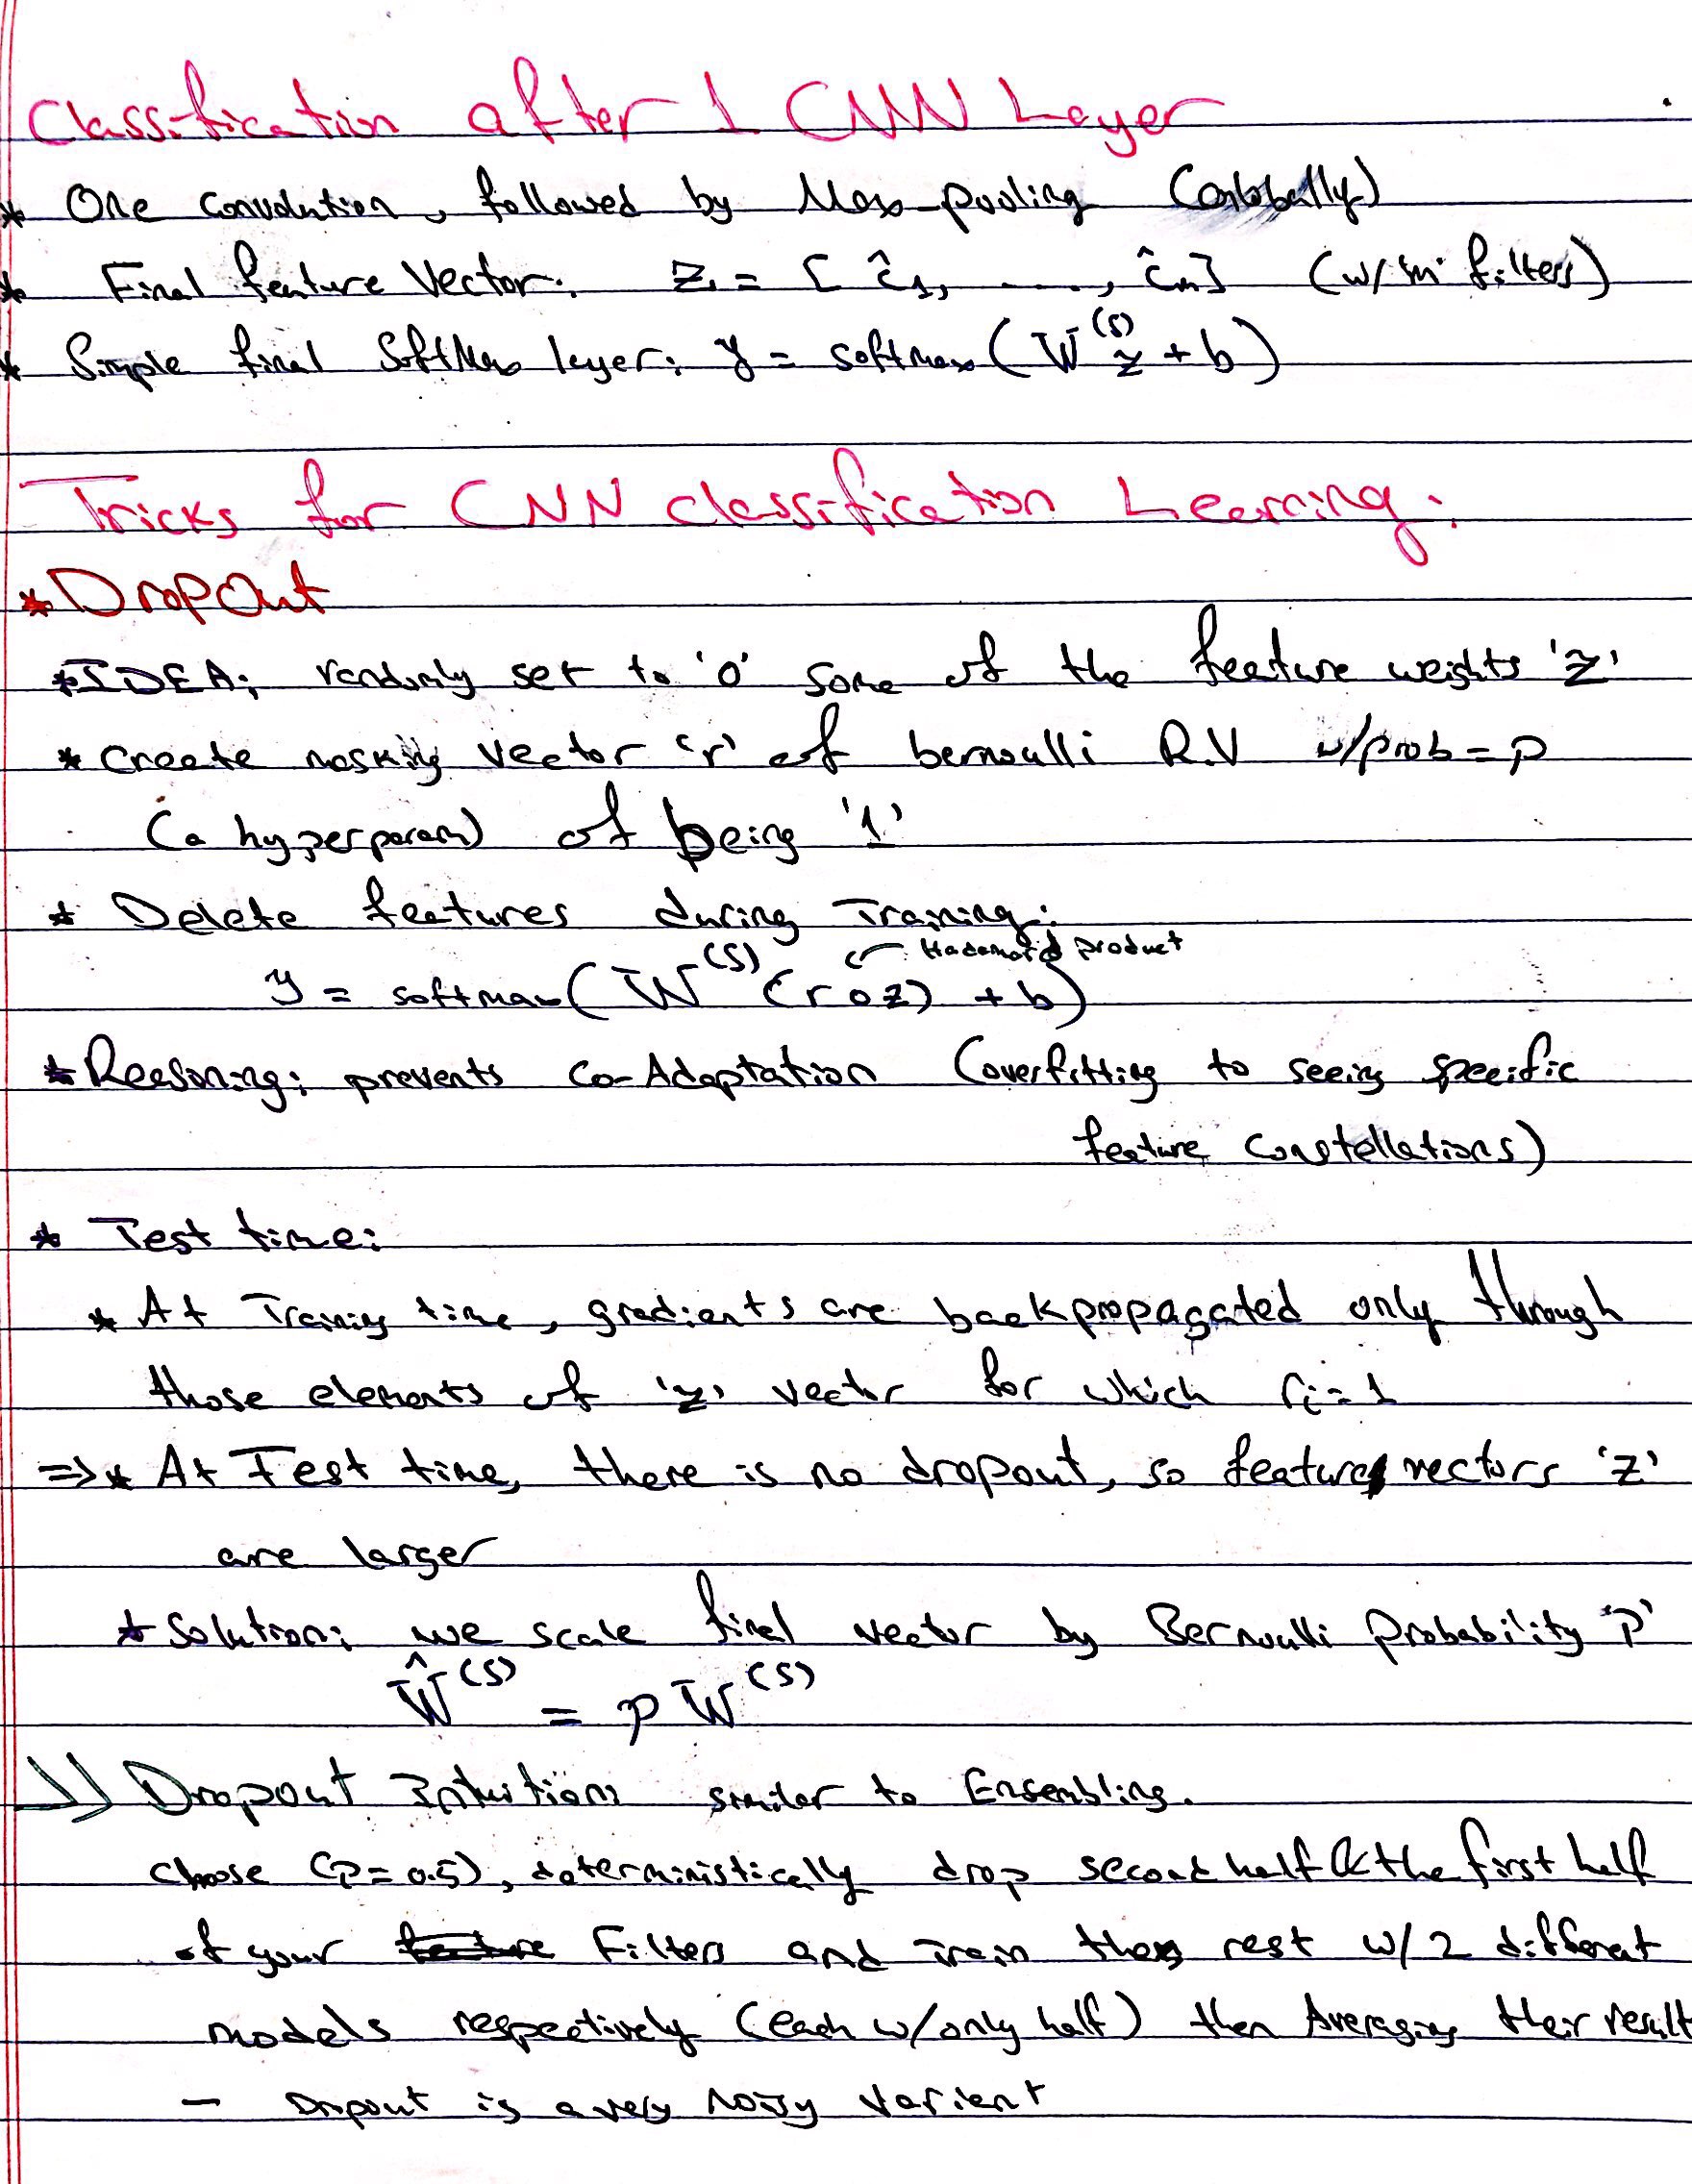 Classification after 1 CNN Layer
* One convolution, followed by Max-pooling (Globally)
* Final feature Vector: z = [ ĉ₁, ....., ĉₘ] (w/ 'm' filters)
* Simple final SoftMax layer: y = softmax(W⁽ˢ⁾z + b)
Tricks for CNN classification Learning:
* DropOut
* IDEA: randomly set to '0' some of the feature weights 'z'
* Create masking vector 'r' of bernoulli R.V w/prob = p
(a hyperparam) of being '1'
* Delete features during Training:
Hadamard product
y = softmax(W⁽ˢ⁾(r o z) + b)
* Reasoning: prevents co-Adaptation (overfitting to seeing specific
feature constellations)
* Test time:
* At Training time, gradients are backpropagated only through
those elements of 'z' vector for which rᵢ = 1
=> * At Test time, there is no dropout, so feature vectors 'z'
are larger
* Solution: we scale final vector by Bernoulli Probability 'P'
Ŵ⁽ˢ⁾ = p W⁽ˢ⁾
>> Dropout Intuition: similar to Ensembling.
choose (P=0.5), deterministically drop second half & the first half
of your feature Filters and Train the rest w/ 2 different
models respectively (each w/only half) then Averaging their result
- Dropout is a very noisy varient